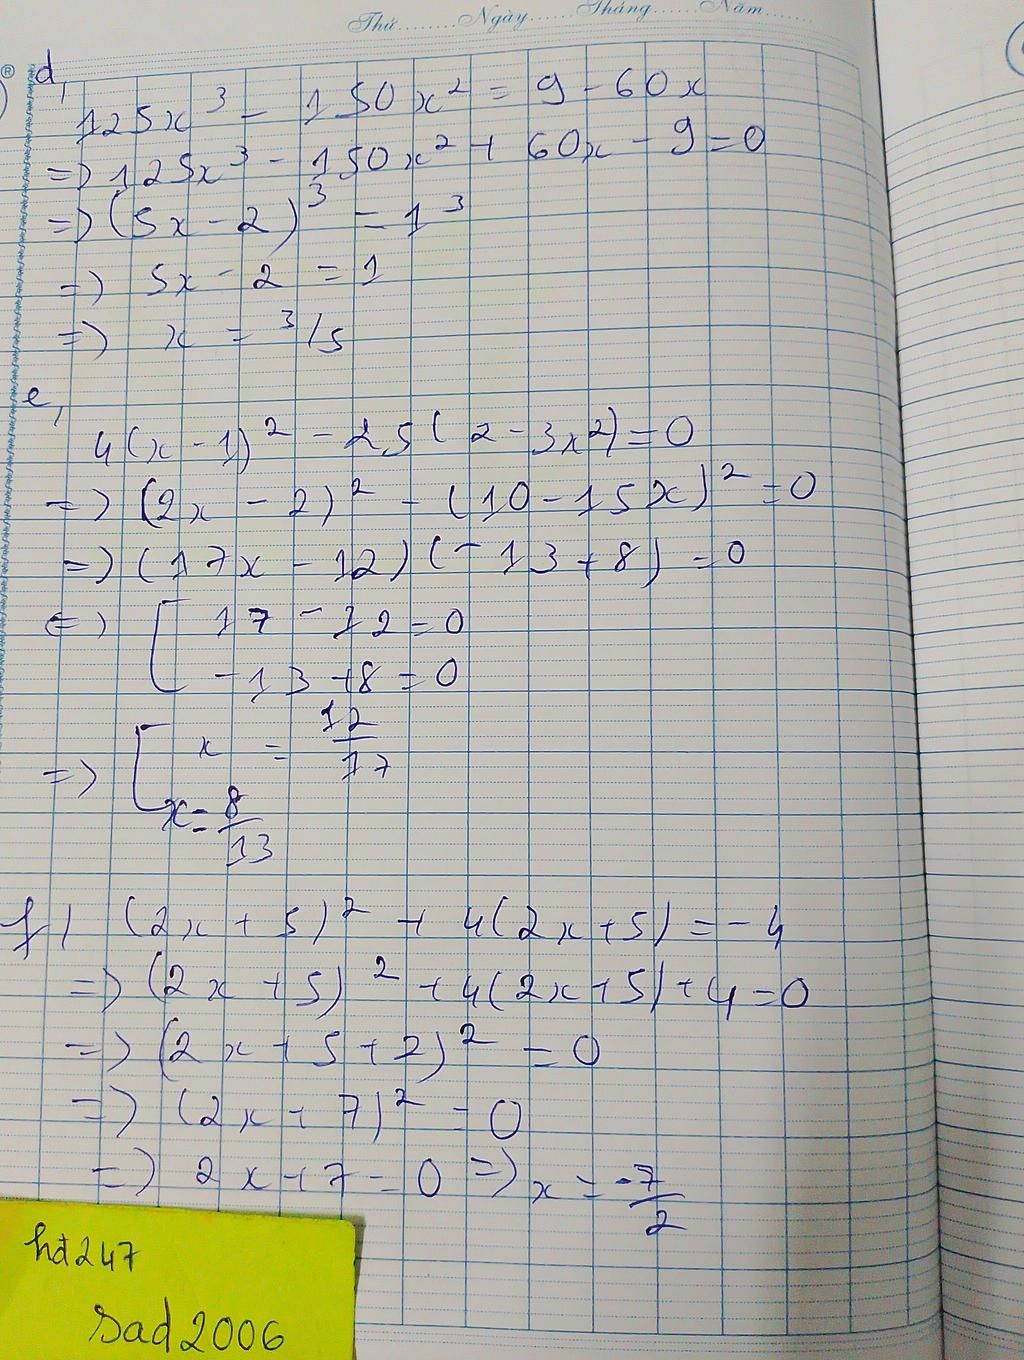 Thứ......Ngày......Tháng......Năm......
®
d,
125x³ - 150x² = 9 - 60x
=> 125x³ - 150x² + 60x - 9 = 0
=> (5x - 2)³ = 1³
=> 5x - 2 = 1
=> x = 3/5
e,
4(x - 1)² - 25(2 - 3x²) = 0
=> (2x - 2)² - (10 - 15x)² = 0
=> (17x - 12)(-13 + 8) = 0
=> [ 17 - 12 = 0
-13 + 8 = 0
=> [ x = 12/17
x = 8/13
f) (2x + 5)² + 4(2x + 5) = -4
=> (2x + 5)² + 4(2x + 5) + 4 = 0
=> (2x + 5 + 2)² = 0
=> (2x + 7)² = 0
=> 2x + 7 = 0 => x = -7/2
hđ247
sad2006